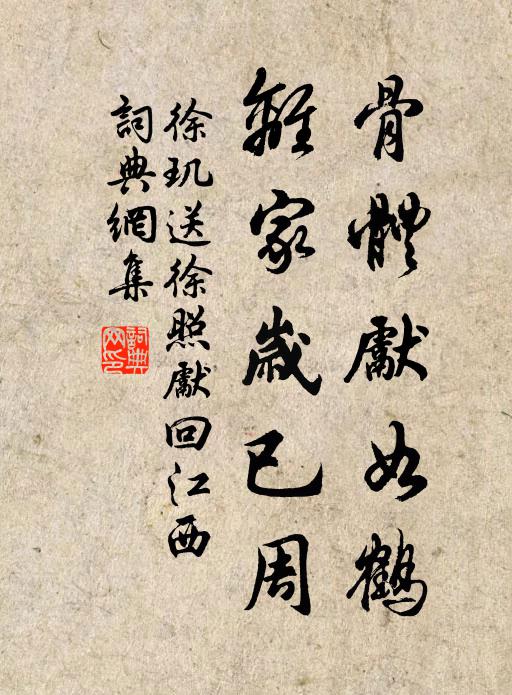 骨體獻如鶴
離家歲已周
徐玑送徐照獻回江西
詞典網集
詞典
网印